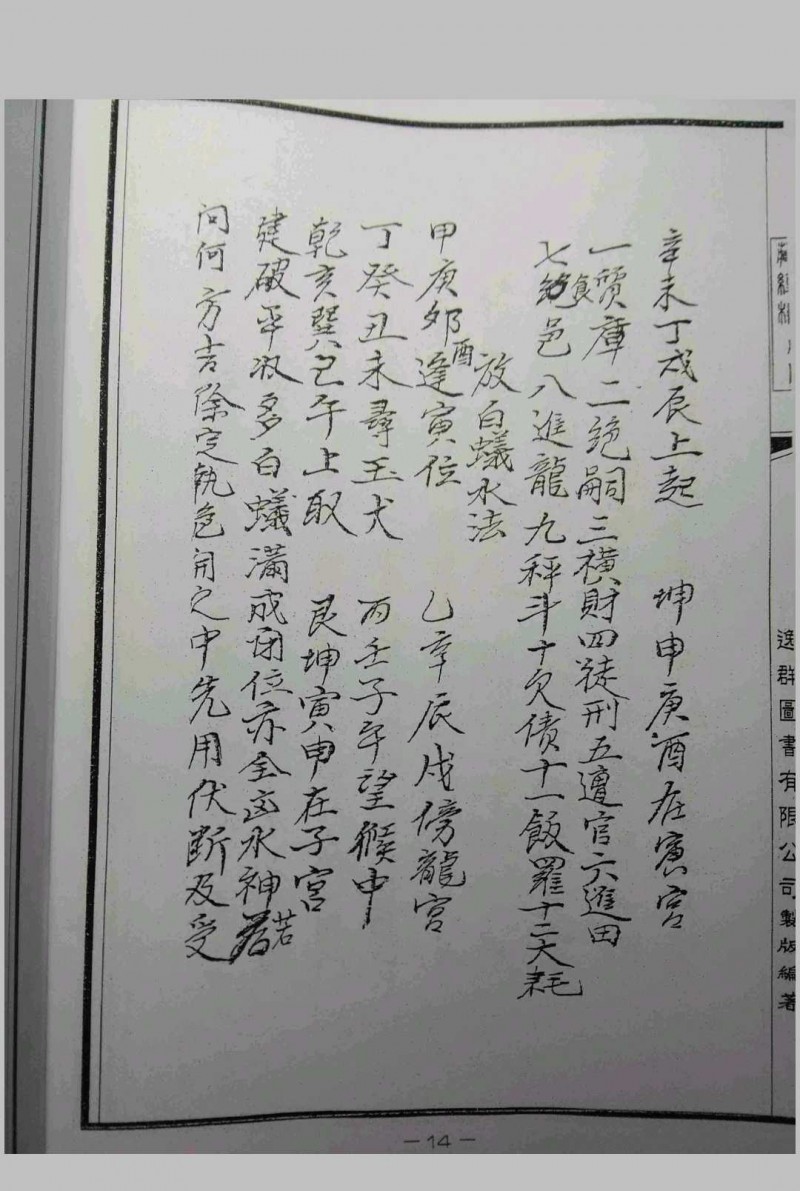 辛未丁戌辰上起　坤申庚酉在寅宮
一質庫二絕嗣三橫財四徒刑五遭官六進田
七絕食邑八進龍九秤斗十欠債十一飯羅十二大耗
放白蟻水法
甲庚卯酉逢寅位　乙辛辰戌傍龍宮
丁癸丑未尋玉犬　丙壬子午望猴中
乾亥巽巳午上取　艮坤寅申在子宮
建破平收多白蟻滿成閉位亦全凶水神若
問何方吉除定執危開之中先用伏斷及受
逸群圖書有限公司製版編著
—14—